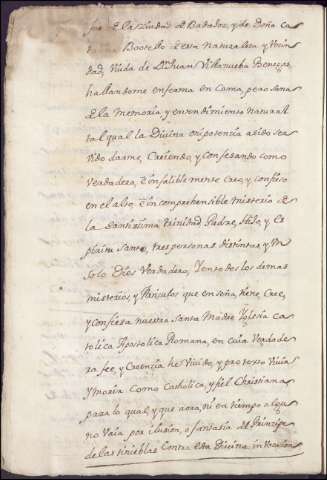 de la Ciudad de Badajoz, y de Doña Ca
ta Bootello de esta Naturaleza y Vecin
dad, Viuda de Dn Juan Villanueba
hallandome enferma en Cama, pero sana
de la memoria, y entendimiento natural
tal qual la Divina omipotencia asido ser
vido darme, Creiendo, y confesando como
Verdadera, e infalible mente Creo, y confieso
en el alto, e incomprehensible misterio de
la Santissima trinidad Padre, Hijo, y Es
piritu Santo, tres personas distintas, y Un
solo Dios Verdadero, Yen todos los demas
misterios, y Articulos que enseña, tiene, Cree,
y confiesa nuestra Santa Madre Iglesia Ca
tolica Apostolica Romana, en cuia Verdade
ra fee, y Creencia he Vivido, y protexto Vivir
Y morir como Catholica, y fiel Christiana
para lo qual, y que aora, ni en tiempo algu
no Vaia por ilusion, o fantasia del Principe
de las tinieblas Contra esta Divina